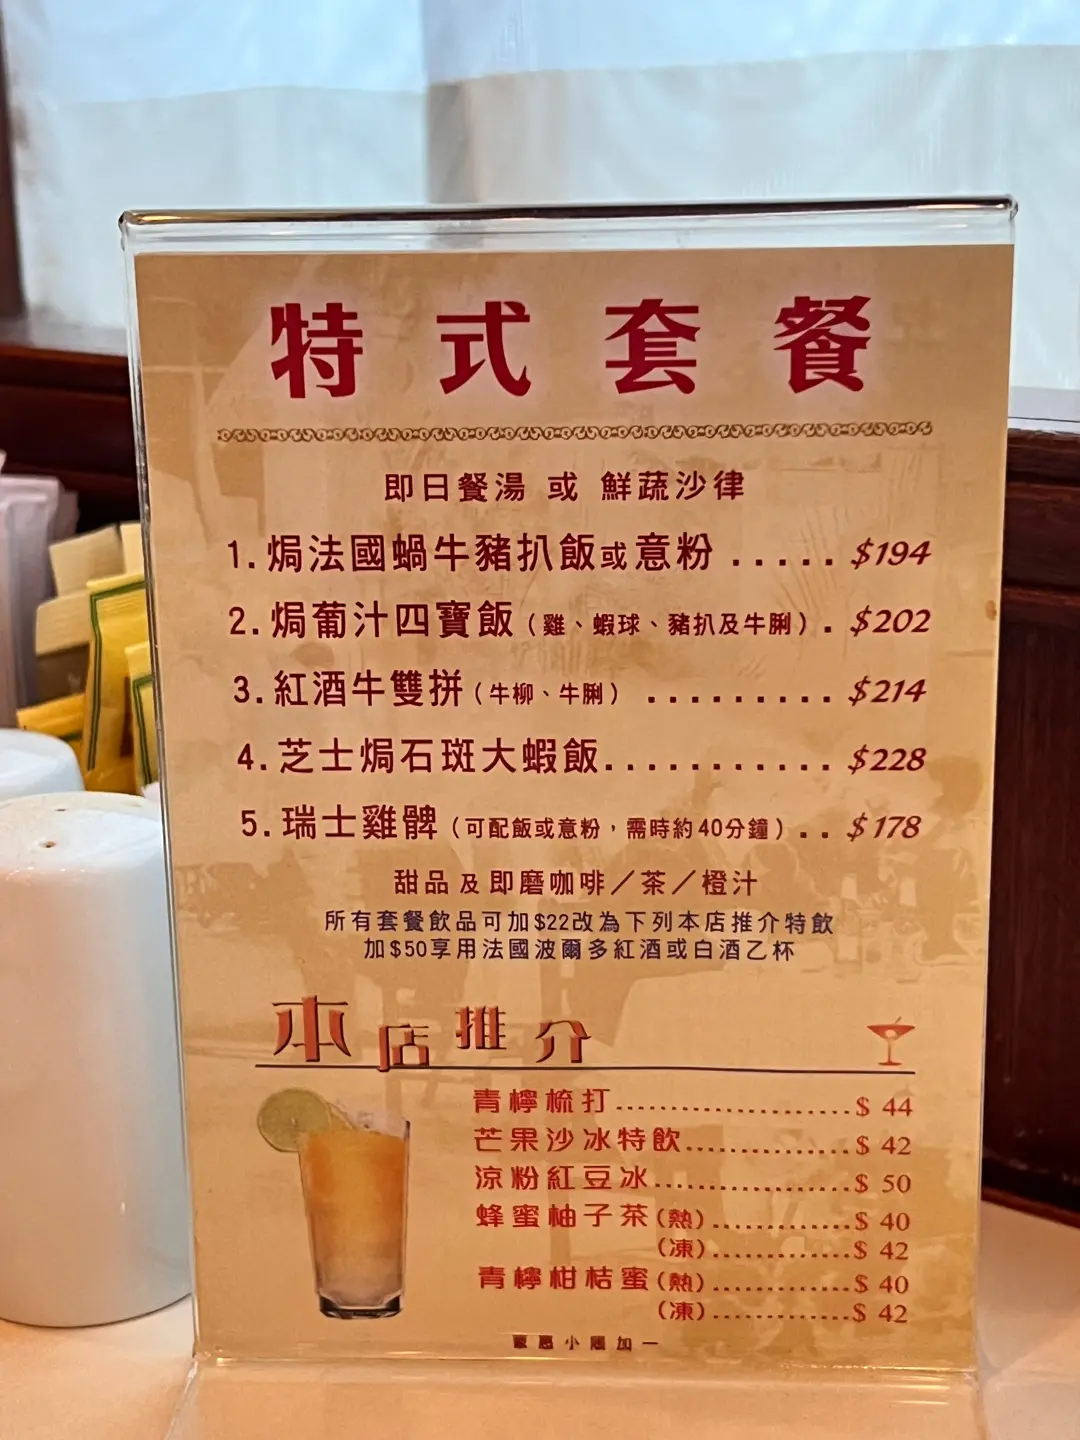 特式套餐
即日餐湯 或 鮮蔬沙律
1. 焗法國蝸牛豬扒飯或意粉 ..... $194
2. 焗葡汁四寶飯 (雞、蝦球、豬扒及牛脷) . $202
3. 紅酒牛雙拼 (牛柳、牛脷) ......... $214
4. 芝士焗石斑大蝦飯........... $228
5. 瑞士雞髀 (可配飯或意粉，需時約40分鐘) .. $178
甜品及即磨咖啡／茶／橙汁
所有套餐飲品可加$22改為下列本店推介特飲
加$50享用法國波爾多紅酒或白酒乙杯
本店推介
青檸梳打........................$ 44
芒果沙冰特飲...............$ 42
涼粉紅豆冰..................$ 50
蜂蜜柚子茶(熱)..............$ 40
(凍)..............$ 42
青檸柑桔蜜(熱)..............$ 40
(凍)..............$ 42
蒙惠小賬加一